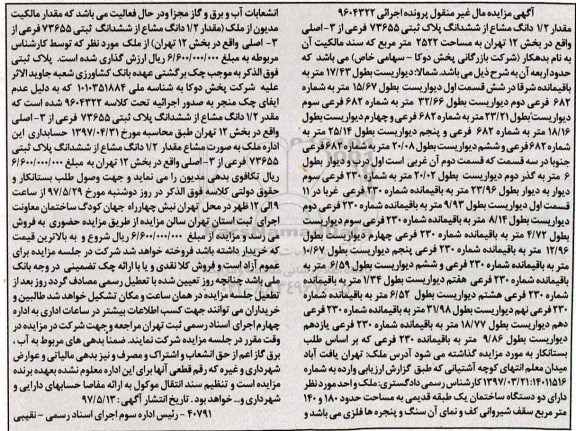 آگهی مزایده مال غیر منقول پرونده اجرائی ۹۶۰۴۳۲۲
مقدار ۱/۲ دانگ مشاع از ششدانگ پلاک ثبتی ۷۳۶۵۵ فرعی از ۳-اصلی
واقع در بخش ۱۲ تهران به مساحت ۲۵۲۲ متر مربع که سند مالکیت آن
به نام بدهکار (شرکت بازرگانی پخش دوکا – سهامی خاص) می باشد که
حدود اربعه آن به شرح ذیل می باشد. شمالا: دیواریست بطول ۱۷/۴۳ متر به
باقیمانده شرقا در شش قسمت اول دیواریست بطول ۱۵/۶۷ متر به شماره
۶۸۲ فرعی دوم دیواریست بطول ۳۲/۶۶ متر به شماره ۶۸۲ فرعی سوم
دیواریست بطول ۲۳/۲۱ متر به شماره ۶۸۲ فرعی و چهارم دیواریست بطول
۱۸/۱۶ متر به شماره ۶۸۲ فرعی و پنجم دیواریست بطول ۲۵/۱۴ متر به
شماره ۶۸۲ فرعی و ششم دیواریست بطول ۲۰/۰۸ متر به شماره ۶۸۲ فرعی
جنوبا در سه قسمت که قسمت دوم آن غربی است اول درب و دیوار بطول
۶ متر به گذر دوم دیواریست بطول ۲۰/۰۲ متر به باقیمانده سوم
دیوار به دیوار بطول ۲۳/۹۶ متر به باقیمانده شماره ۲۳۰ فرعی غربا در ۱۱
قسمت اول دیواریست بطول ۹/۹۳ متر به باقیمانده شماره ۲۳۰ فرعی دوم
دیواریست بطول ۸/۱۴ متر به باقیمانده شماره ۲۳۰ فرعی سوم دیواریست
بطول ۴/۷۲ متر به باقیمانده شماره ۲۳۰ فرعی چهارم دیواریست بطول
۱۲/۹۶ متر به باقیمانده شماره ۲۳۰ فرعی پنجم دیواریست بطول ۱۰/۶۷
متر به باقیمانده شماره ۲۳۰ فرعی و ششم دیواریست بطول ۶/۵۹ متر به
باقیمانده شماره ۲۳۰ فرعی هفتم دیواریست بطول ۱/۳۴ متر به باقیمانده
شماره ۲۳۰ فرعی هشتم دیواریست بطول ۶/۵۲ متر به باقیمانده شماره
۲۳۰ فرعی نهم دیواریست بطول ۳۱/۹۸ متر به باقیمانده شماره ۲۳۰ فرعی
دهم دیواریست بطول ۱۸/۷۷ متر به باقیمانده شماره ۲۳۰ فرعی یازدهم
دیواریست بطول ۹/۸۶ متر به باقیمانده ۲۳۰ فرعی که بر اساس طلب
بستانکار به مورد مزایده گذاشته می شود آدرس ملک: تهران یافت آباد
میدان معلم انتهای کوچه آشتیانی که طبق گزارش ارزیابی وارده به شماره
۱۴۰۱۱۵۱۶: ۱۳۹۷/۰۳/۲۱ کارشناس رسمی دادگستری: ملک و احد مورد نظر
دارای دو دستگاه ساختمان یک طبقه قدیمی به مساحت حدود ۱۸۰ و ۱۴۰
متر مربع سقف شیروانی کف و نمای آن سنگ و پنجره ها فلزی می باشد و
انشعابات آب و برق و گاز مجزا و در حال فعالیت می باشد که مقدار مالکیت
مدیون از ملک (مقدار ۱/۲ دانگ مشاع از ششدانگ ثبتی ۷۳۶۵۵ فرعی از
۳- اصلی واقع در بخش ۱۲ تهران) از ملک مورد نظر که توسط کارشناس
مربوطه به مبلغ ۶/۶۰۰/۰۰۰/۰۰۰ ریال ارزش گذاری شده است. پلاک ثبتی
فوق الذکر به موجب چک برگشتی عهده بانک کشاورزی شعبه جاوید الاثر
علیه شرکت پخش دوکا به شناسه ملی ۱۰۱۰۳۵۱۸۸۴ که به دلیل عدم
ایفای چک منجر به صدور اجرائیه تحت کلاسه ۹۶۰۴۳۲۲ شده است که
مقدار ۱/۲ دانگ مشاع از ششدانگ پلاک ثبتی ۷۳۶۵۵ فرعی از ۳-اصلی
واقع در بخش ۱۲ تهران طبق محاسبه مورخ ۱۳۹۷/۰۴/۳۱ حسابداری این
اداره ملک به صورت مشاع مقدار ۱/۲ دانگ مشاع از ششدانگ پلاک ثبتی
۷۳۶۵۵ فرعی از ۳-اصلی واقع در بخش ۱۲ تهران به مبلغ ۶/۶۰۰/۰۰۰/۰۰۰
ریال تکافوی بدهی مدیون را می نماید و جهت وصول طلب بستانکار و
حقوق دولتی کلاسه فوق الذکر در روز دوشنبه مورخ ۹۷/۵/۲۹ از ساعت
۹ الی ۱۲ ظهر در محل تهران نبش چهارراه جهان کودک ساختمان معاونت
اجرای ثبت استان تهران سالن مزایده از طریق مزایده حضوری به فروش
می رسد و مزایده از مبلغ ۶/۶۰۰/۰۰۰/۰۰۰ ریال شروع و به بالاترین قیمت
که خریدار داشته باشد فروخته خواهد شد شرکت در جلسه مزایده برای
عموم آزاد است و فروش کلا نقدی و یا با ارائه چک تضمینی در وجه بانک
ملی باشد چنانچه روز تعیین شده با تعطیل رسمی مصادف گردد روز بعد از
تعطیل جلسه مزایده در همان ساعت و مکان تشکیل خواهد شد طالبین و
خریداران می توانند جهت کسب اطلاعات بیشتر در ساعات اداری به اداره
چهارم اجرای اسناد رسمی ثبت تهران مراجعه وجهت شرکت در مزایده در
وقت مقرر در جلسه مزایده شرکت نمایند. ضمنا بدهی های مربوط به آب،
برق گاز اعم از حق انشعاب و اشتراک و مصرف و نیز بدهی مالیاتی و عوارض
شهرداری و غیره که رقم قطعی آنها برای این اداره معلوم نشده بعهده برنده
مزایده است و تنظیم سند انتقال موکول به ارائه مفاصا حسابهای دارایی و
شهرداری و... خواهد بود. تاریخ انتشار آگهی: ۹۷/۵/۱۳
۴۰۷۹۱ – رئیس اداره سوم اجرای اسناد رسمی – نقیبی